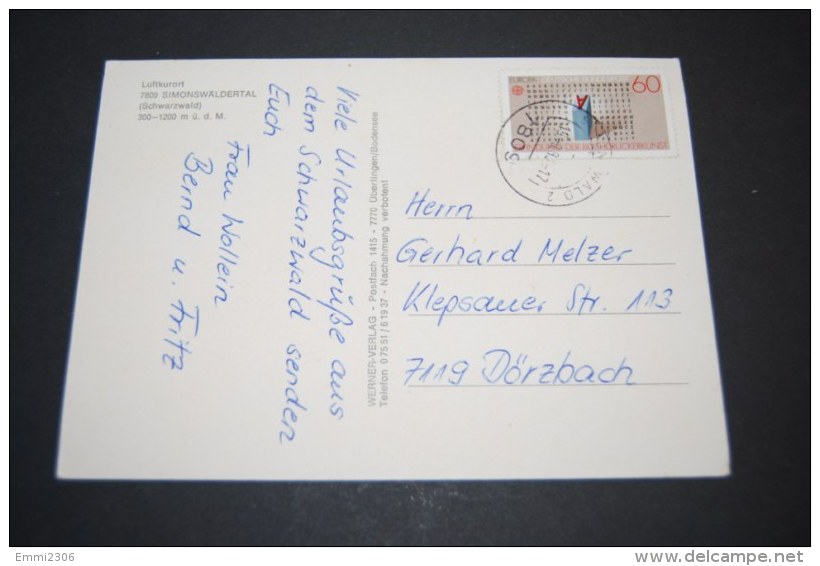 Luftkurort
7809 SIMONSWÄLDERTAL
(Schwarzwald)
300–1200 m ü. d. M.
Viele Urlaubsgrüße aus
dem Schwarzwald senden
Euch
Frau Wollein
Bernd u. Fritz
WERNER-VERLAG - Postfach 1415 - 7770 Überlingen/Bodensee
Telefon 07551/61937 - Nachahmung verboten!
EUROPA
60
A
DER BUCHDRUCKERKUNST
7809
WALD 2
Herrn
Gerhard Melzer
Klepsauer Str. 113
7119 Dörzbach
Emmi2306
delcampe.net